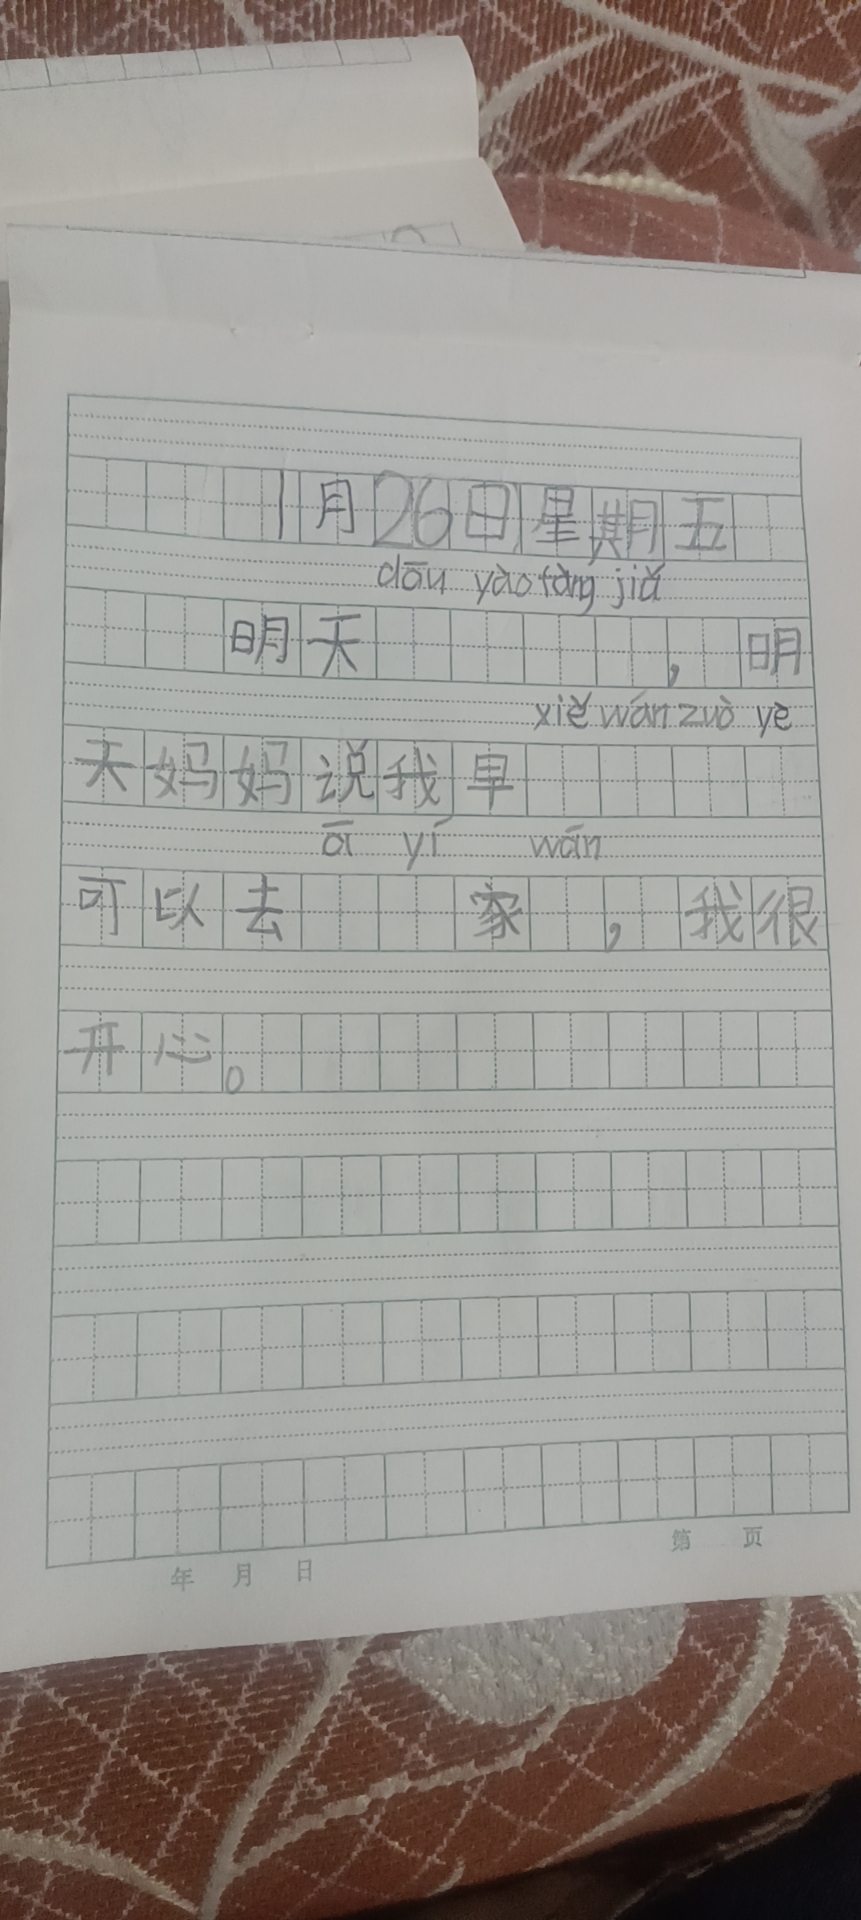 1月26日星期五
dōu yào fàng jiǎ
明天，明
xiě wán zuò yè
天妈妈说我早
āi yí wán
可以去家，我很
开心。
年 月 日 第 页